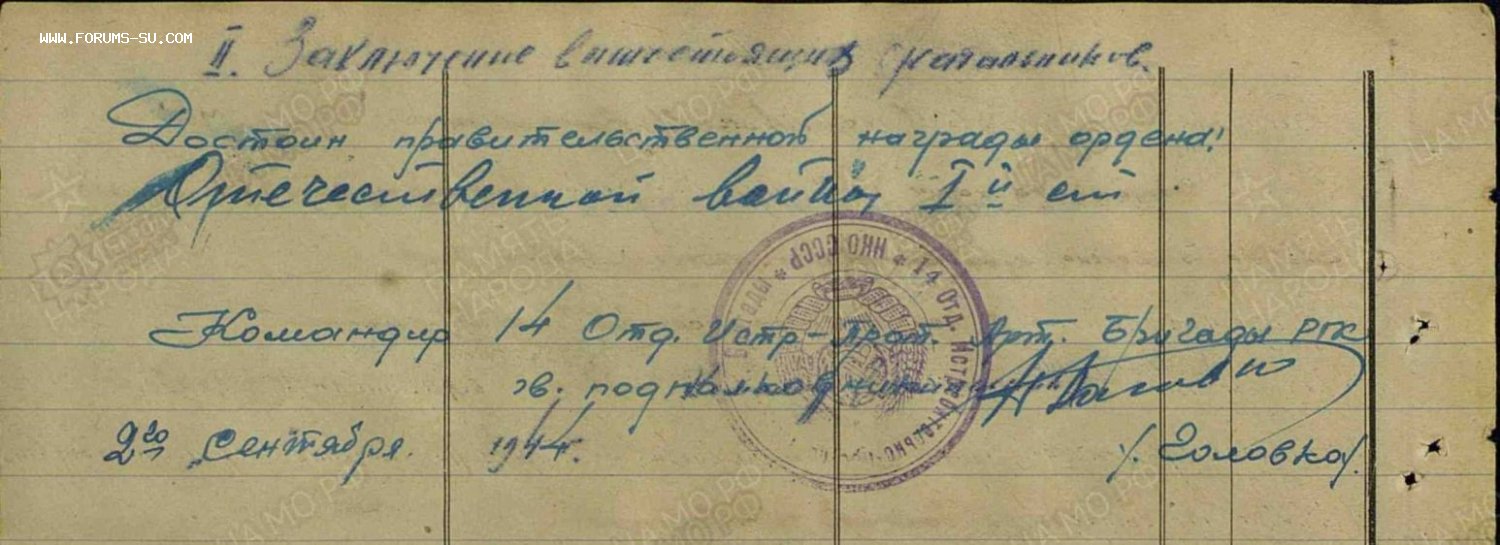 WWW.FORUMS-SU.COM
II. Заключение вышестоящих начальников.
Достоин правительственной награды ордена:
Отечественной войны I й ст
Командир 14 Отд. Истр-Прот. Арт. Бригады РГК
гв. подполковник
/. Головко/.
2го Сентября. 1944г.
НКО СССР * 14 Отд. Истребительно-